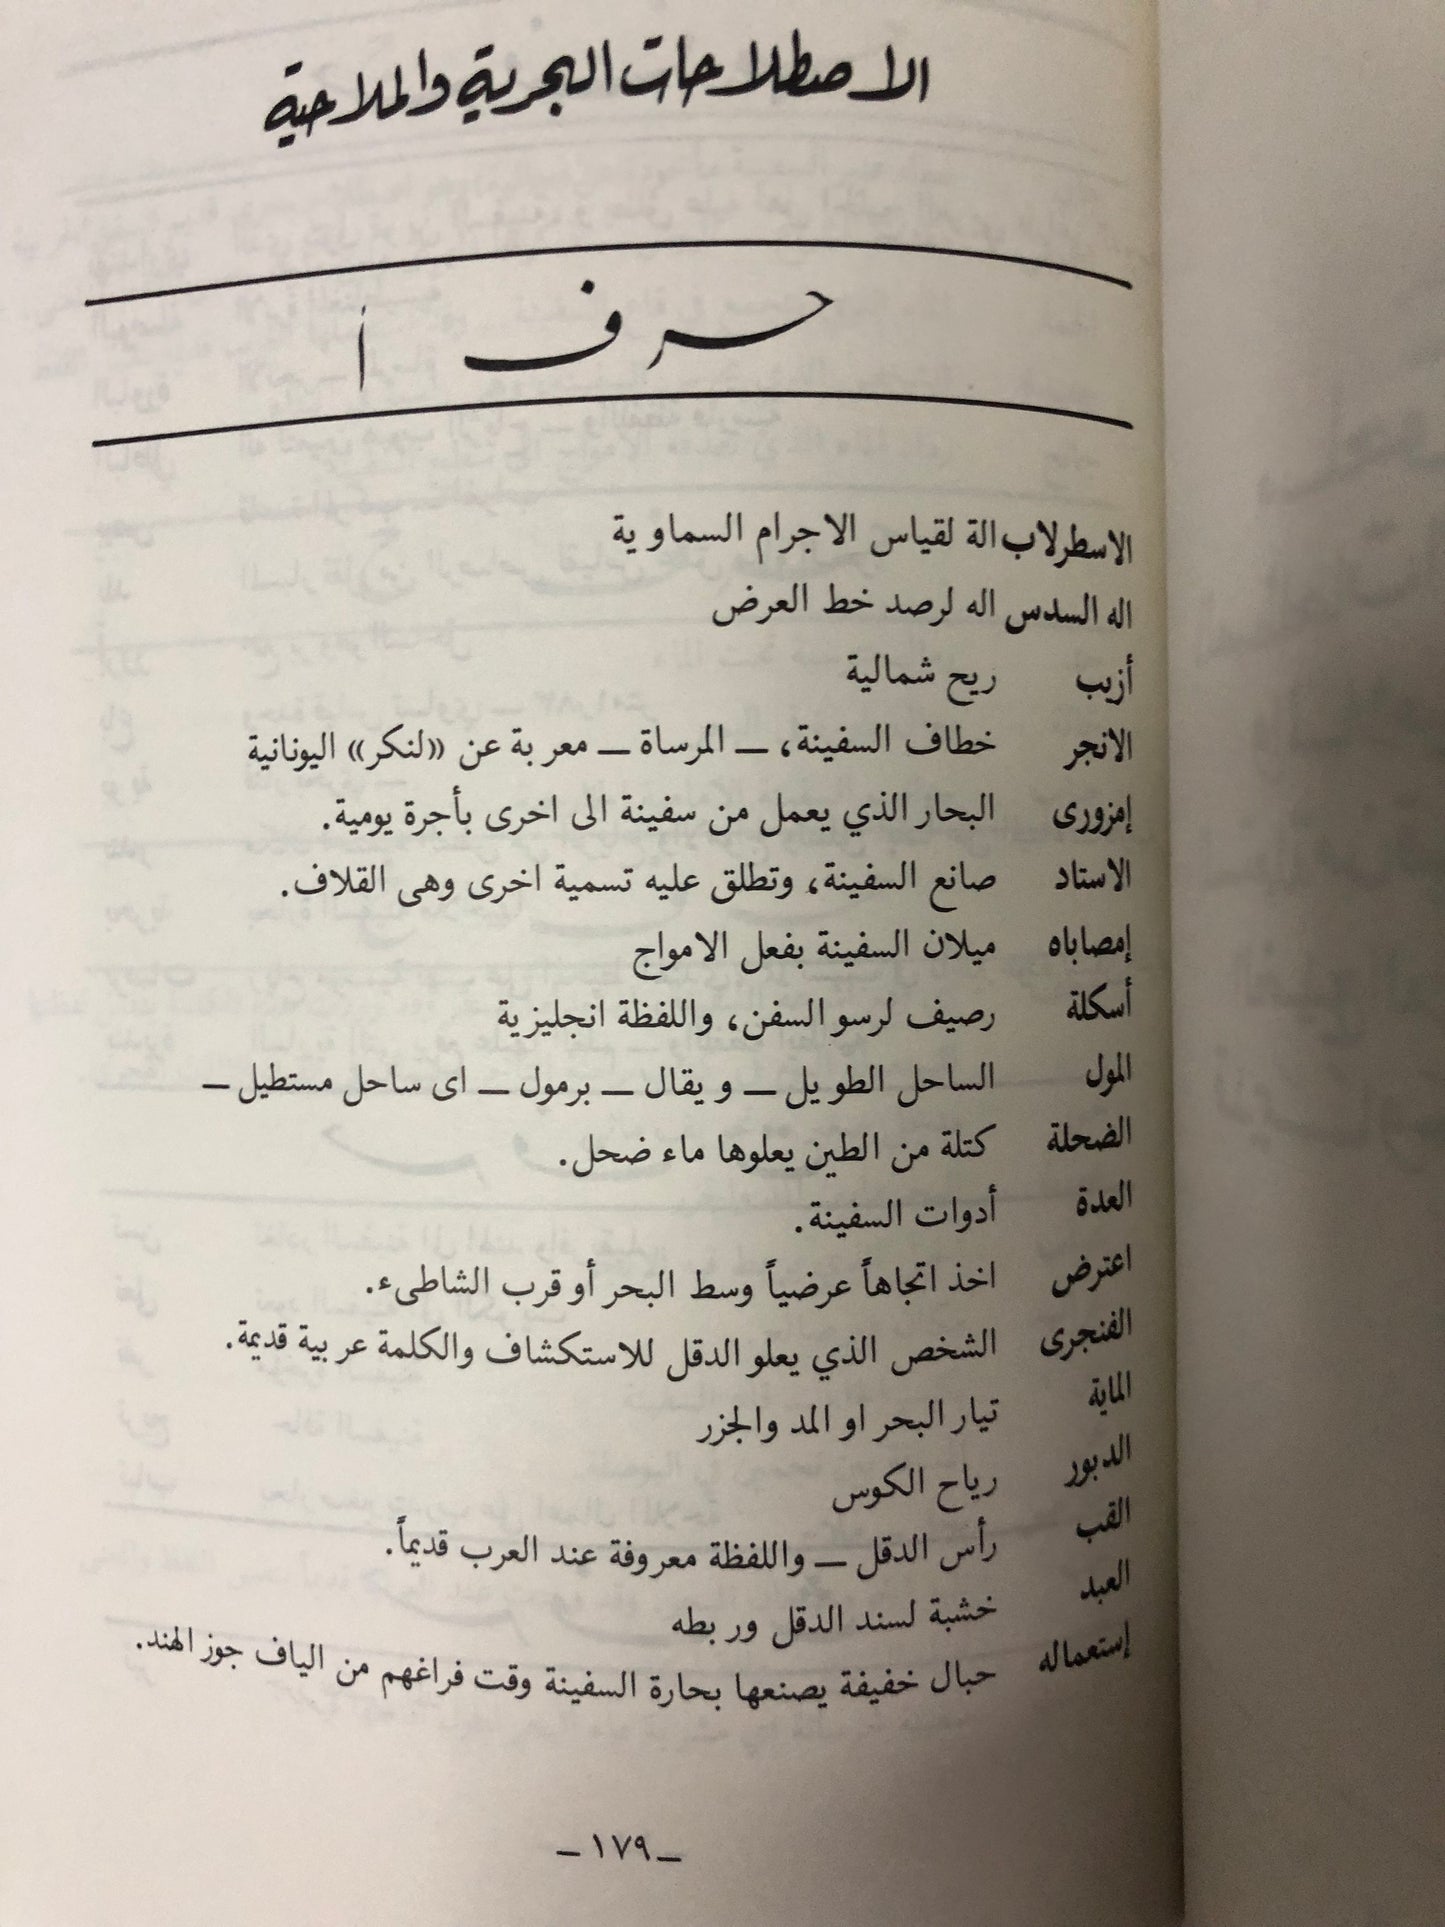 الاصطلاحات البحرية والملاحية
حرف أ
الاسطرلاب الة لقياس الاجرام السماوية
اله السدس اله لرصد خط العرض
أزيب ريح شمالية
الانجر خطاف السفينة، ــ المرساة ــ معربة عن «لنكر» اليونانية
إمزورى البحار الذي يعمل من سفينة الى اخرى بأجرة يومية.
الاستاد صانع السفينة، وتطلق عليه تسمية اخرى وهى القلاف.
إمصاباه ميلان السفينة بفعل الامواج
أسكلة رصيف لرسو السفن، واللفظة انجليزية
المول الساحل الطويل ــ ويقال ــ برمول ــ اى ساحل مستطيل ــ
الضحلة كتلة من الطين يعلوها ماء ضحل.
العدة أدوات السفينة.
اعترض اخذ اتجاهاً عرضياً وسط البحر أو قرب الشاطىء.
الفنجرى الشخص الذي يعلو الدقل للاستكشاف والكلمة عربية قديمة.
الماية تيار البحر او المد والجزر
الدبور رياح الكوس
القب رأس الدقل ــ واللفظة معروفة عند العرب قديماً.
العبد خشبة لسند الدقل وربطه
إستعماله حبال خفيفة يصنعها بحارة السفينة وقت فراغهم من الياف جوز الهند.
ــ ١٧٩ ــ